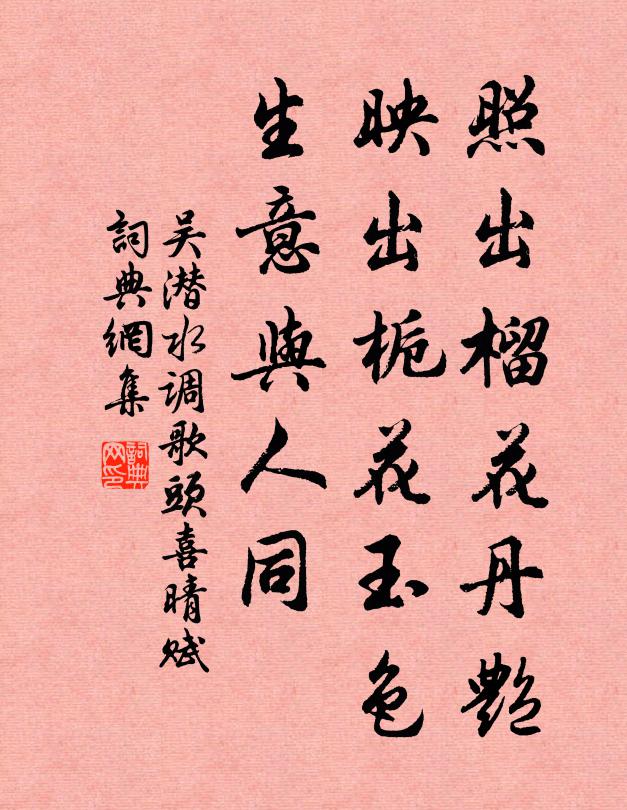 照出榴花丹艷
映出栀花玉色
生意與人同
吴潜水调歌頭喜晴赋
詞典網集
詞典
网印